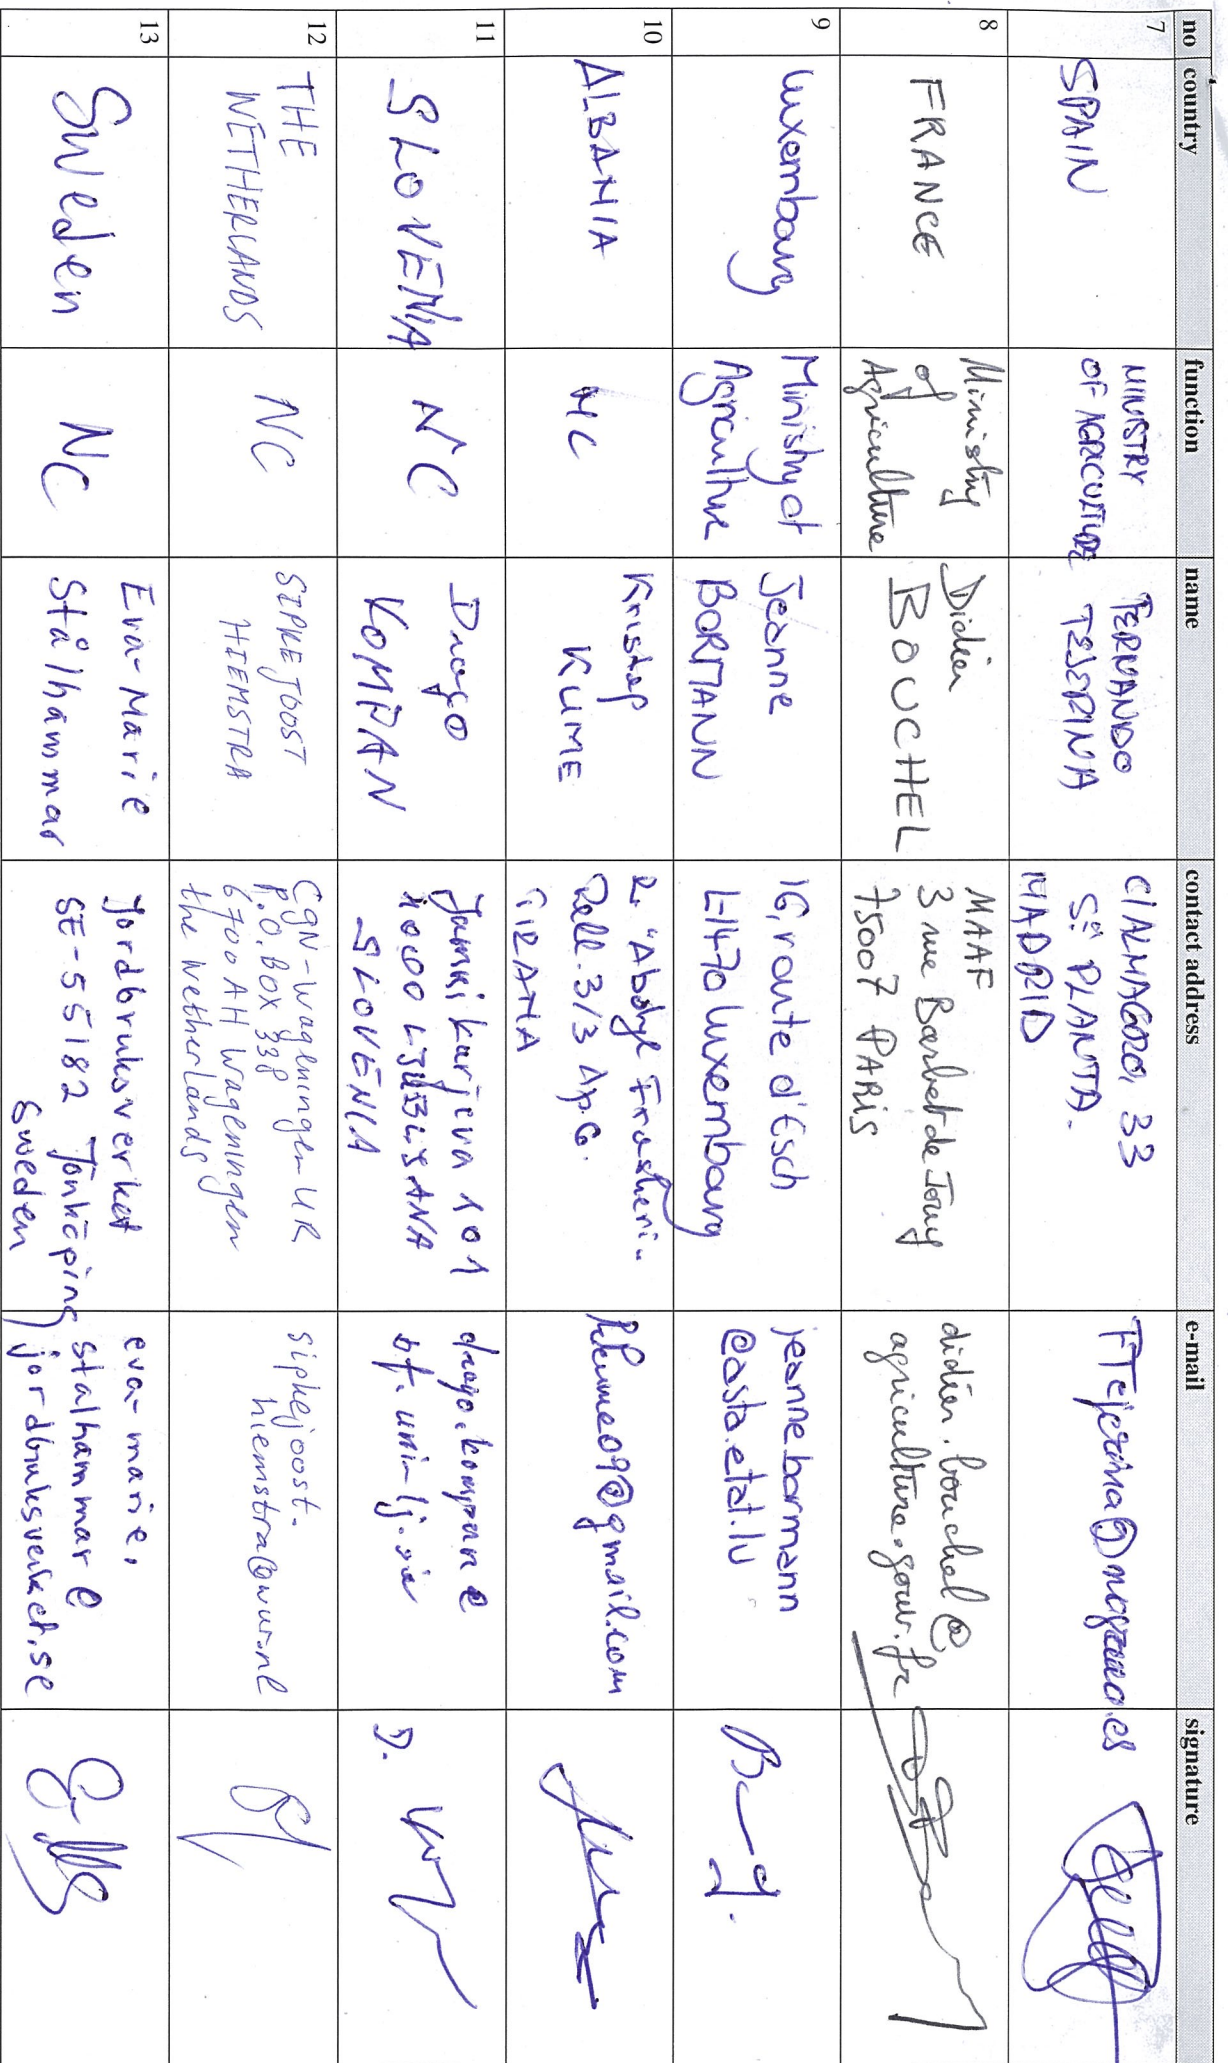 no country function name contact address e-mail signature
7
SPAIN
MINISTRY
OF AGRICULTURE
FERNANDO
TEJERINA
C/ALMAGRO, 33
5ª PLANTA.
MADRID
8
FRANCE
Ministry
of
Agriculture
Didier
BOUCHEL
MAAF
3 rue Barbet de Jouy
75007 PARIS
didier.bouchel@
agriculture.gouv.fr
9
Luxembourg
Ministry of
Agriculture
Jeanne
BORMANN
16, route d'Esch
L-1470 Luxembourg
jeanne.bormann
@asta.etat.lu
10
ALBANIA
NC
Kristaq
KUME
R. "Abdyl Frasheri"
Pall. 3/3 Ap.6.
TIRANA
kkume09@gmail.com
11
SLOVENIA
NC
Drago
KOMPAN
Jamnikarjeva 101
1000 LJUBLJANA
SLOVENIA
drago.kompan@
bf.uni-lj.si
12
THE
NETHERLANDS
NC
SIPKE JOOST
HIEMSTRA
CGN-Wageningen UR
P.O. Box 338
6700 AH Wageningen
the Netherlands
sipkejoost.
hiemstra@wur.nl
13
Sweden
NC
Eva-Marie
Stålhammar
Jordbruksverket
SE-55182 Jönköping
Sweden
eva-marie.
stalhammar@
jordbruksverket.se